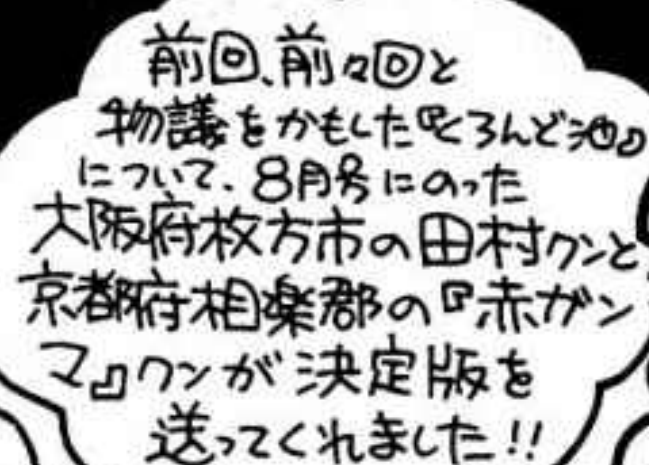 前回、前々回と
物議をかもした『くろんど池』
について、8月号にのった
大阪府枚方市の田村クンと
京都府相楽郡の『赤ガン
マ』クンが決定版を
送ってくれました!!